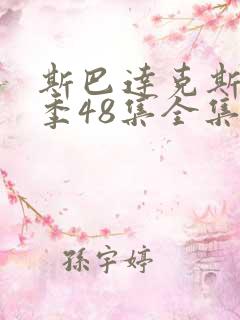 斯巴达克斯
季48集全集
孫宇婷